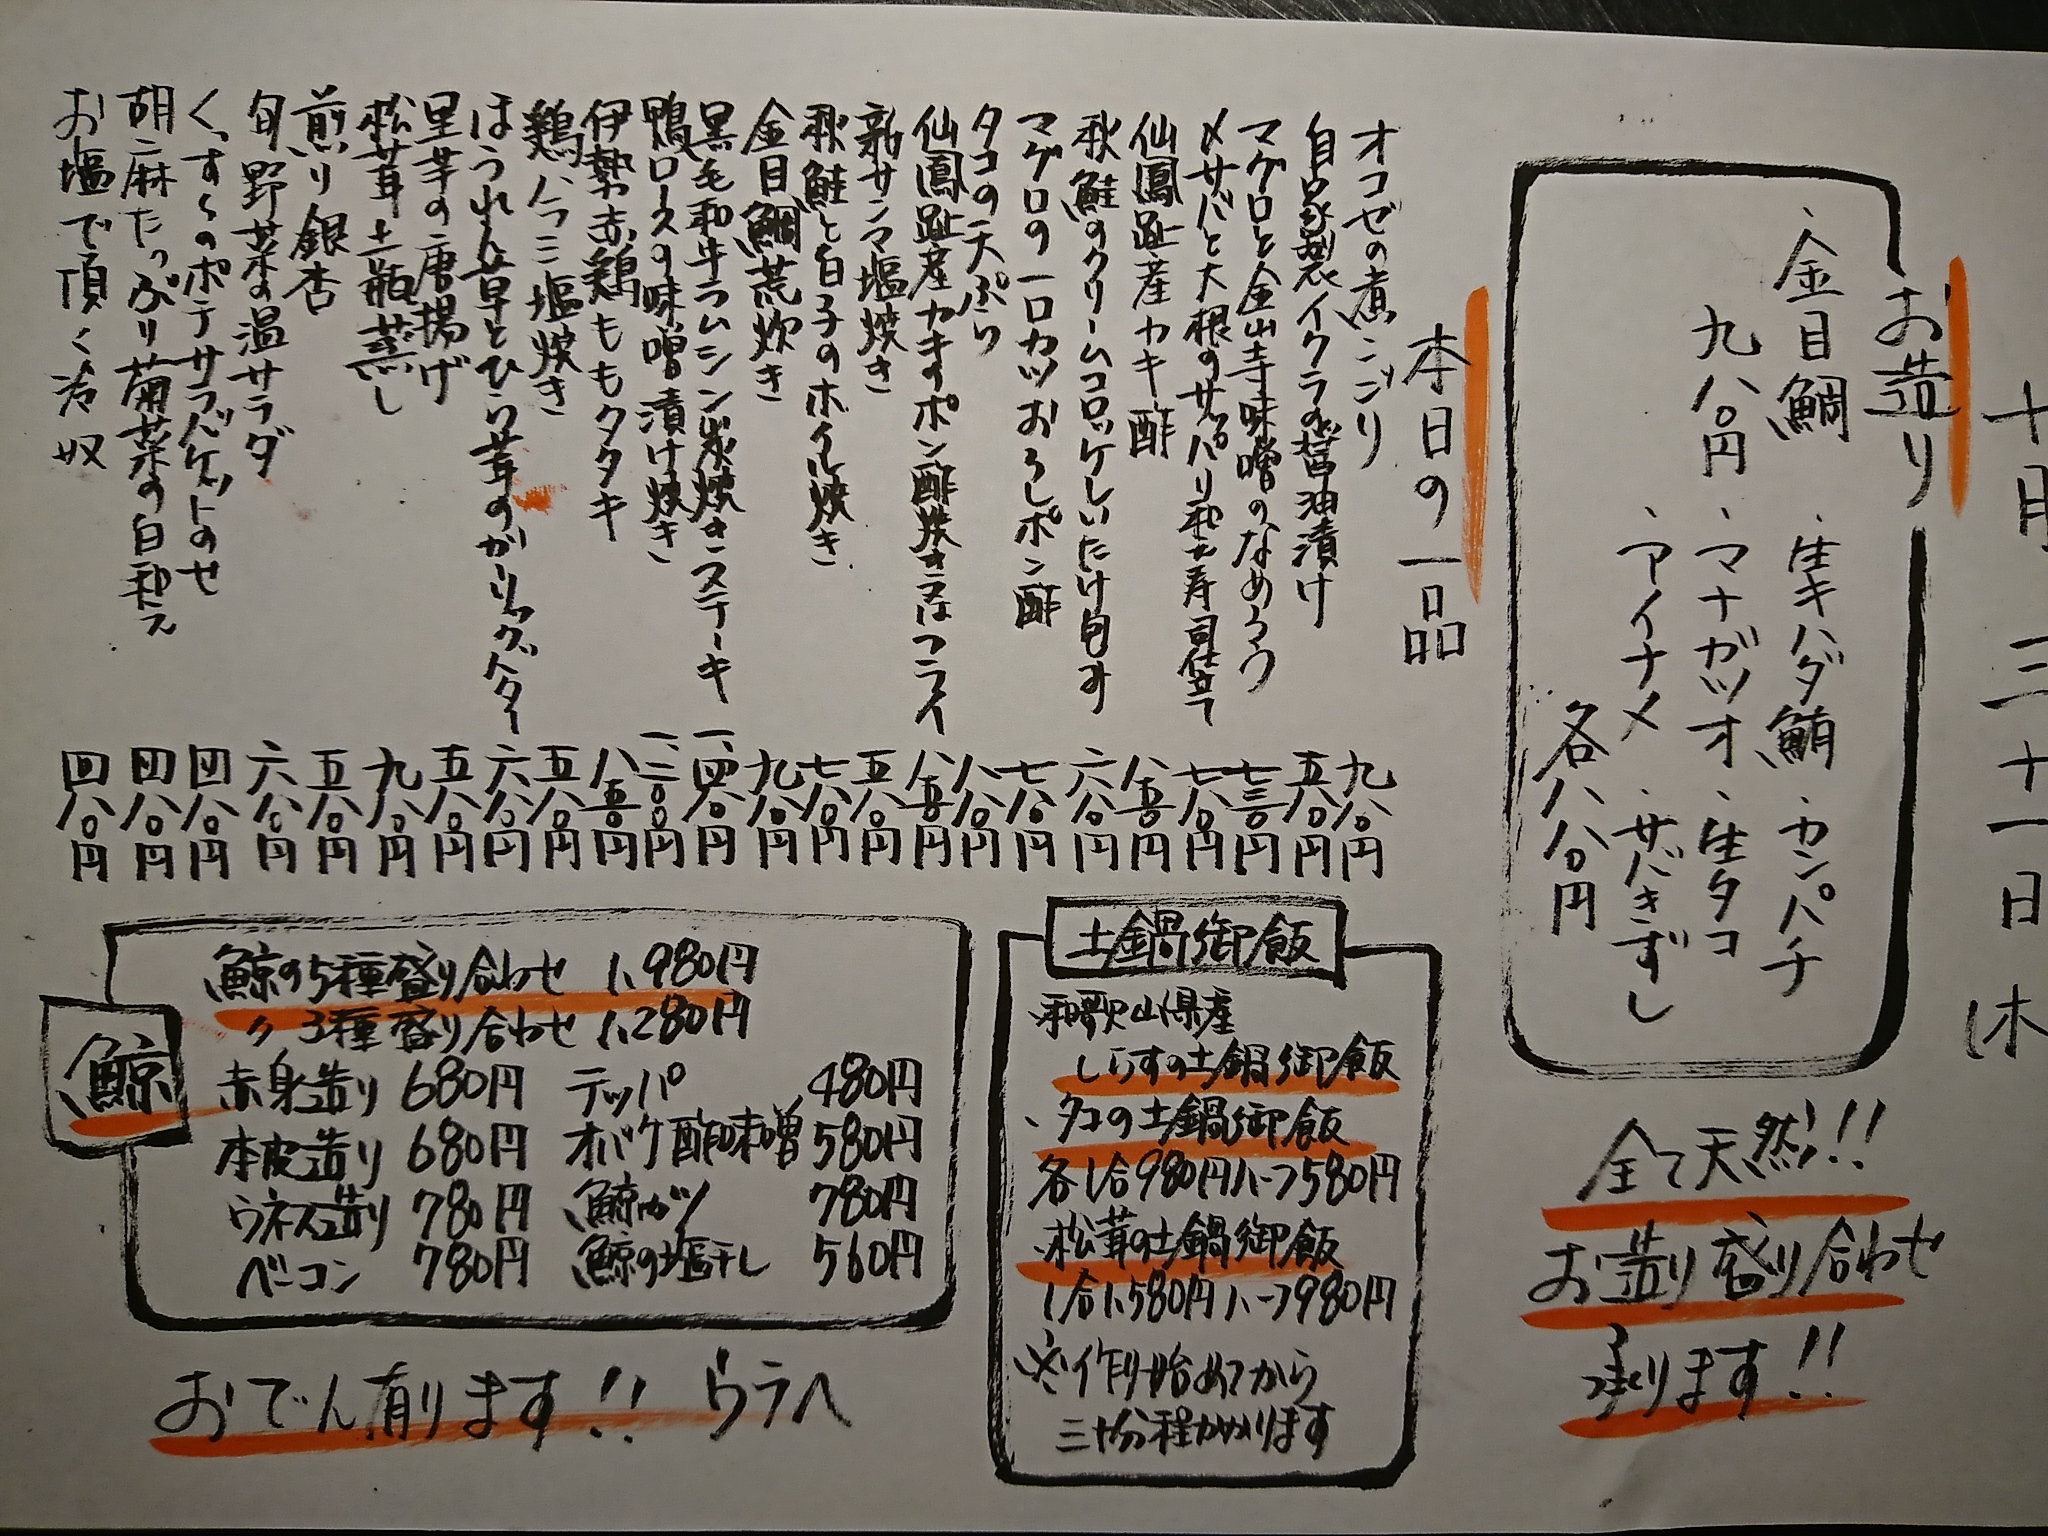 十月三十一日(木
お造り
、金目鯛 、生キハダ鮪 、カンパチ
九八〇円 、マナガツオ 、生タコ
、アイナメ 、サバきずし
各八八〇円
全て天然!!
お造り盛り合わせ
承ります!!
本日の一品
オコゼの煮こごり 九八〇円
自家製イクラの醤油漬け 五八〇円
マグロと金山寺味噌のなめろう 七三〇円
〆サバと大根のサッパリ和え寿司仕立て 七八〇円
仙鳳趾産カキ酢 八五〇円
秋鮭のクリームコロッケしいたけ包み 六八〇円
マグロの一口カツおろしポン酢 七八〇円
タコの天ぷら 八八〇円
仙鳳趾産カキのポン酢焼き又はフライ 八五〇円
新サンマ塩焼き 五八〇円
秋鮭と白子のホイル焼き 七八〇円
金目鯛荒炊き 九八〇円
黒毛和牛ラムシン炭焼きステーキ 一、四八〇円
鴨ロースの味噌漬け焼き 一、二〇〇円
伊勢赤鶏ももタタキ 八五〇円
鶏ハラミ塩焼き 五八〇円
ほうれん草とひら茸のガーリックバター 六八〇円
里芋の唐揚げ 五八〇円
松茸土瓶蒸し 九八〇円
煎り銀杏 五八〇円
旬野菜の温サラダ 六八〇円
くずしのポテサラバケットのせ 四八〇円
胡麻たっぷり菊菜の白和え 四八〇円
お塩で頂く冷奴 四八〇円
土鍋御飯
、和歌山県産
しらすの土鍋御飯
、タコの土鍋御飯
各1合980円ハーフ580円
、松茸の土鍋御飯
1合1、580円ハーフ980円
※作り始めてから
三十分程かかります
鯨
鯨の5種盛り合わせ 1、980円
〃 3種盛り合わせ 1、280円
赤身造り 680円 テッパ 480円
本皮造り 680円 オバケ酢味噌 580円
ウネス造り 780円 鯨カツ 780円
ベーコン 780円 鯨の塩干し 560円
おでん有ります!! ウラへ